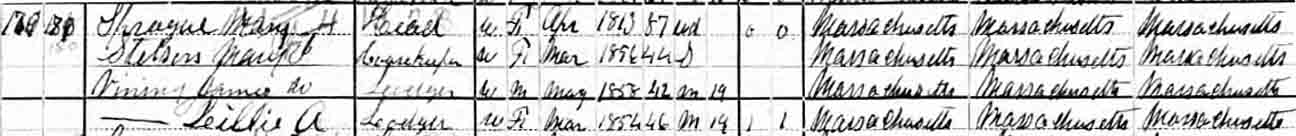 Sprague Mary H Head W F Apr 1813 87 wd 0 0 Massachusetts Massachusetts Massachusetts
Stetson Housekeeper W F Mar 1856 44 S Massachusetts Massachusetts Massachusetts
Vining James W Lodger W M May 1858 42 M 19 Massachusetts Massachusetts Massachusetts
— Lillie A Lodger W F Mar 1854 46 M 19 1 1 Massachusetts Massachusetts Massachusetts